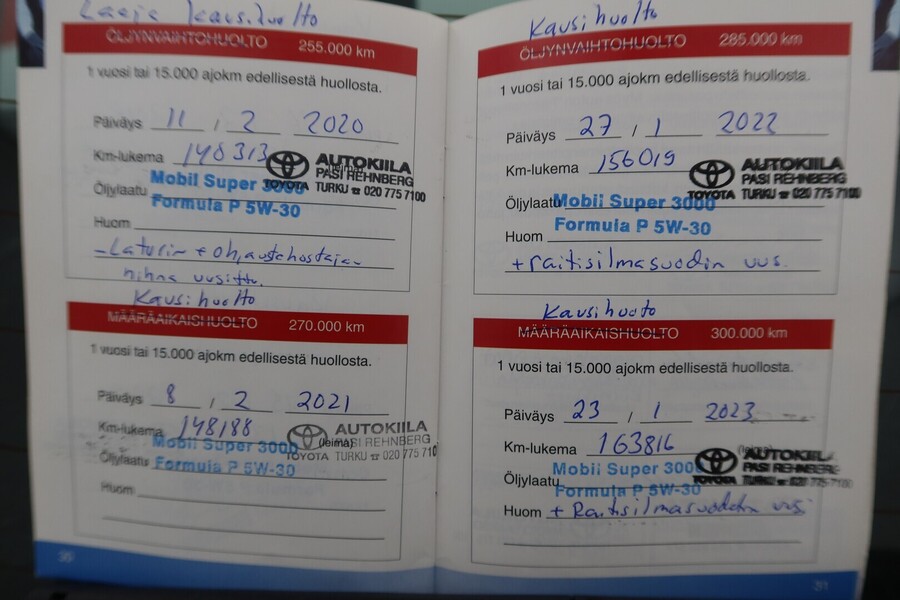 Laaja kausihuolto
ÖLJYNVAIHTOHUOLTO 255.000 km
1 vuosi tai 15.000 ajokm edellisestä huollosta.
Päiväys 11 / 2 2020
Km-lukema 148313
AUTOKIILA
PASI REHNBERG
TOYOTA TURKU ☎ 020 775 7100
Öljylaatu Mobil Super 3000
Formula P 5W-30
Huom
- Laturin + ohjaustehostajan
hihna uusittu.
Kausihuolto
MÄÄRÄAIKAISHUOLTO 270.000 km
1 vuosi tai 15.000 ajokm edellisestä huollosta.
Päiväys 8 / 2 2021
Km-lukema 148188
(leima)
AUTOKIILA
PASI REHNBERG
TOYOTA TURKU ☎ 020 775 710
Öljylaatu Mobil Super 3000
Formula P 5W-30
Huom
Kausihuolto
ÖLJYNVAIHTOHUOLTO 285.000 km
1 vuosi tai 15.000 ajokm edellisestä huollosta.
Päiväys 27 / 1 2022
Km-lukema 156019
AUTOKIILA
PASI REHNBERG
TOYOTA TURKU ☎ 020 775 7100
Öljylaatu Mobil Super 3000
Formula P 5W-30
Huom
+ raitisilmasuodin uus.
Kausihuoto
MÄÄRÄAIKAISHUOLTO 300.000 km
1 vuosi tai 15.000 ajokm edellisestä huollosta.
Päiväys 23 / 1 2023
Km-lukema 163816
AUTOKIILA
PASI REHNBERG
TOYOTA TURKU ☎ 020 775 7100
Öljylaatu Mobil Super 3000
Formula P 5W-30
Huom + Raitisilmasuodatin uusi
31